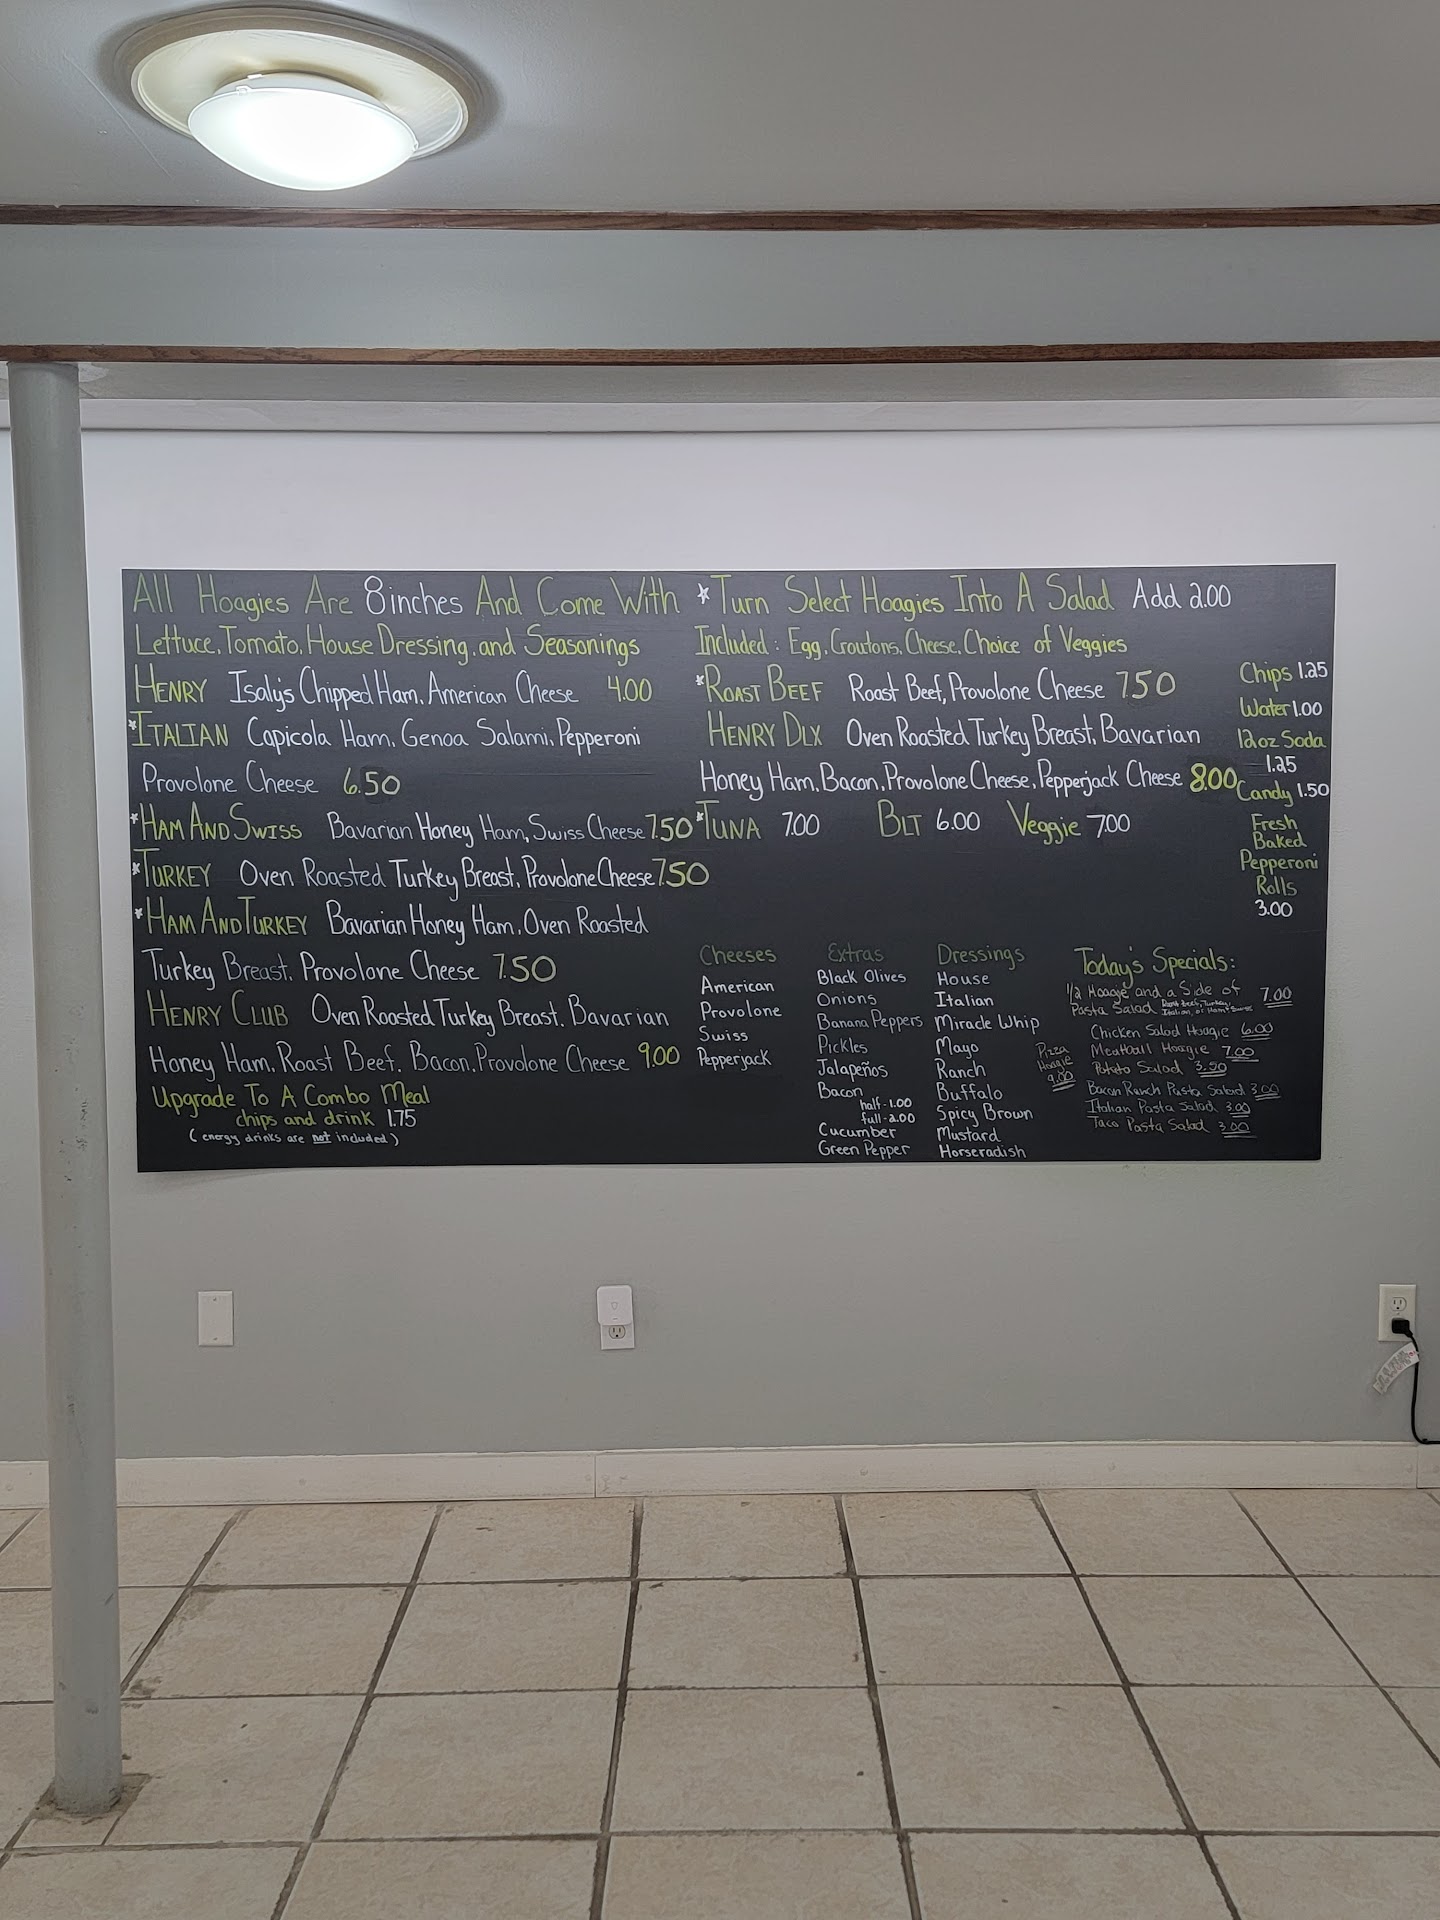 All Hoagies Are 8inches And Come With
Lettuce, Tomato, House Dressing, and Seasonings
HENRY Isaly's Chipped Ham, American Cheese 4.00
*ITALIAN Capicola Ham, Genoa Salami, Pepperoni
Provolone Cheese 6.50
*HAM AND SWISS Bavarian Honey Ham, Swiss Cheese 7.50
*TURKEY Oven Roasted Turkey Breast, Provolone Cheese 7.50
*HAM AND TURKEY Bavarian Honey Ham, Oven Roasted
Turkey Breast, Provolone Cheese 7.50
HENRY CLUB Oven Roasted Turkey Breast, Bavarian
Honey Ham, Roast Beef, Bacon, Provolone Cheese 9.00
Upgrade To A Combo Meal
chips and drink 1.75
(energy drinks are not included)
*Turn Select Hoagies Into A Salad Add 2.00
Included: Egg, Croutons, Cheese, Choice of Veggies
*ROAST BEEF Roast Beef, Provolone Cheese 7.50
HENRY DLX Oven Roasted Turkey Breast, Bavarian
Honey Ham, Bacon, Provolone Cheese, Pepperjack Cheese 8.00
*TUNA 7.00 BLT 6.00 Veggie 7.00
Chips 1.25
Water 1.00
12oz Soda
1.25
Candy 1.50
Fresh
Baked
Pepperoni
Rolls
3.00
Cheeses
American
Provolone
Swiss
Pepperjack
Extras
Black Olives
Onions
Banana Peppers
Pickles
Jalapeños
Bacon
half-1.00
full-2.00
Cucumber
Green Pepper
Dressings
House
Italian
Miracle Whip
Mayo
Ranch
Buffalo
Spicy Brown
Mustard
Horseradish
Pizza
Hoagie
9.00
Today's Specials:
1/2 Hoagie and a Side of
Pasta Salad Roast Beef, Turkey, 7.00
Italian, or Ham + Swiss
Chicken Salad Hoagie 6.00
Meatball Hoagie 7.00
Potato Salad 3.50
Bacon Ranch Pasta Salad 3.00
Italian Pasta Salad 3.00
Taco Pasta Salad 3.00